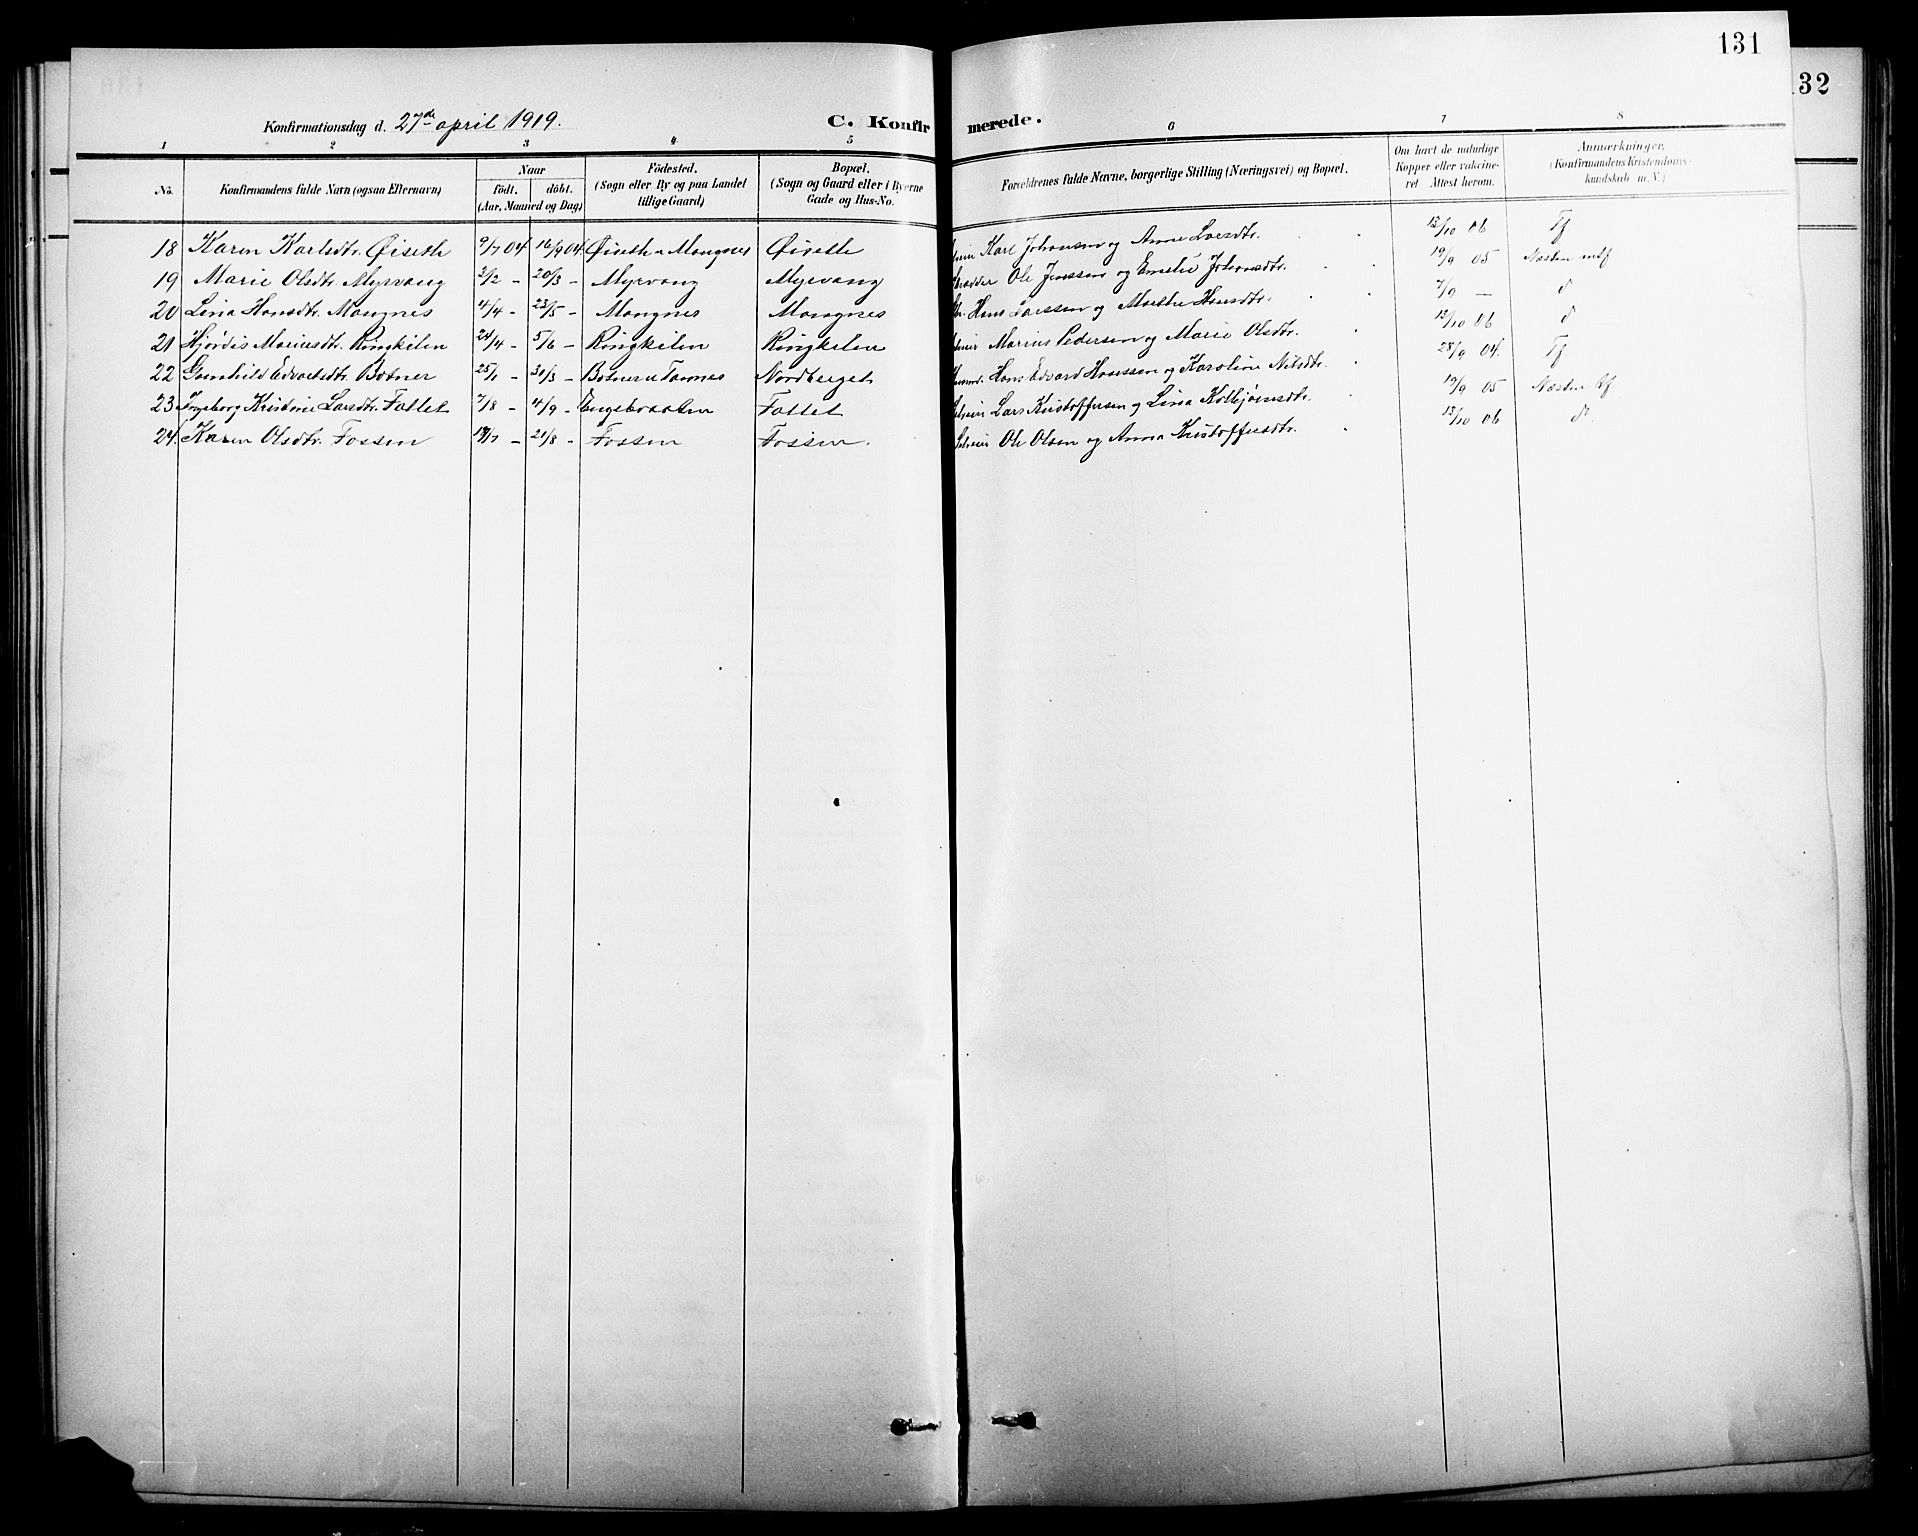 131
132
Konfirmationsdag d. 27de april 1919.
C. Konfirmerede.
1 2 3 4 5 6 7 8
No. Konfirmandens fulde Navn (ogsaa Efternavn)
Naar
födt. döbt.
(Aar, Maaned og Dag)
Födested.
(Sogn eller By og paa Landet
tillige Gaard)
Bopæl.
(Sogn og Gaard eller i Byerne
Gade og Hus-No.
Forældrenes fulde Navne, borgerlige Stilling (Næringsvei) og Bopæl.
Om havt de naturlige
Kopper eller vakcine-
ret Attest herom.
Anmærkninger.
(Konfirmandens Kristendoms-
kundskab m. V.)
18 Karen Karlsdtr. Øiseth 9/7 04 16/9 04 Øiseth u Mangnes Øiseth Karl Johansen og Anne Larsdtr. 12/10 06 Tf
19 Marie Olsdtr. Myrvang 2/2 – 20/3 – Myrvang Myrvang Ole Jenssen og Emelie Johansdtr. 19/9 05 Næsten mtf
20 Lina Hansdtr. Mangnes 4/4 – 23/5 – Mangnes Mangnes Hans Larssen og Marthe Hansdtr. 7/9 – d
21 Hjördis Mariusdtr. Ringkilen 24/4 – 5/6 – Ringkilen Ringkilen Marius Pedersen og Marie Olsdtr. 12/10 06 d
22 Gunhild Edvartsdtr. Botner 25/1 – 30/3 – Botner u Tannes Nordberget Hans Edvard Hanssen og Karoline Nilsdtr. 28/9 04. Tf
23 Ingeborg Kristine Larsdtr. Fallet 7/8 – 4/9 – Engebraaten Fallet Selveier Lars Kristoffersen og Lina Kolbjörnsdtr. 19/9 05 Næsten tf.
24. Karen Olsdtr. Fossen 19/7 – 21/8 – Fossen Fossen. Selveier Ole Olsen og Anna Kristoffersdtr. 13/10 06 d